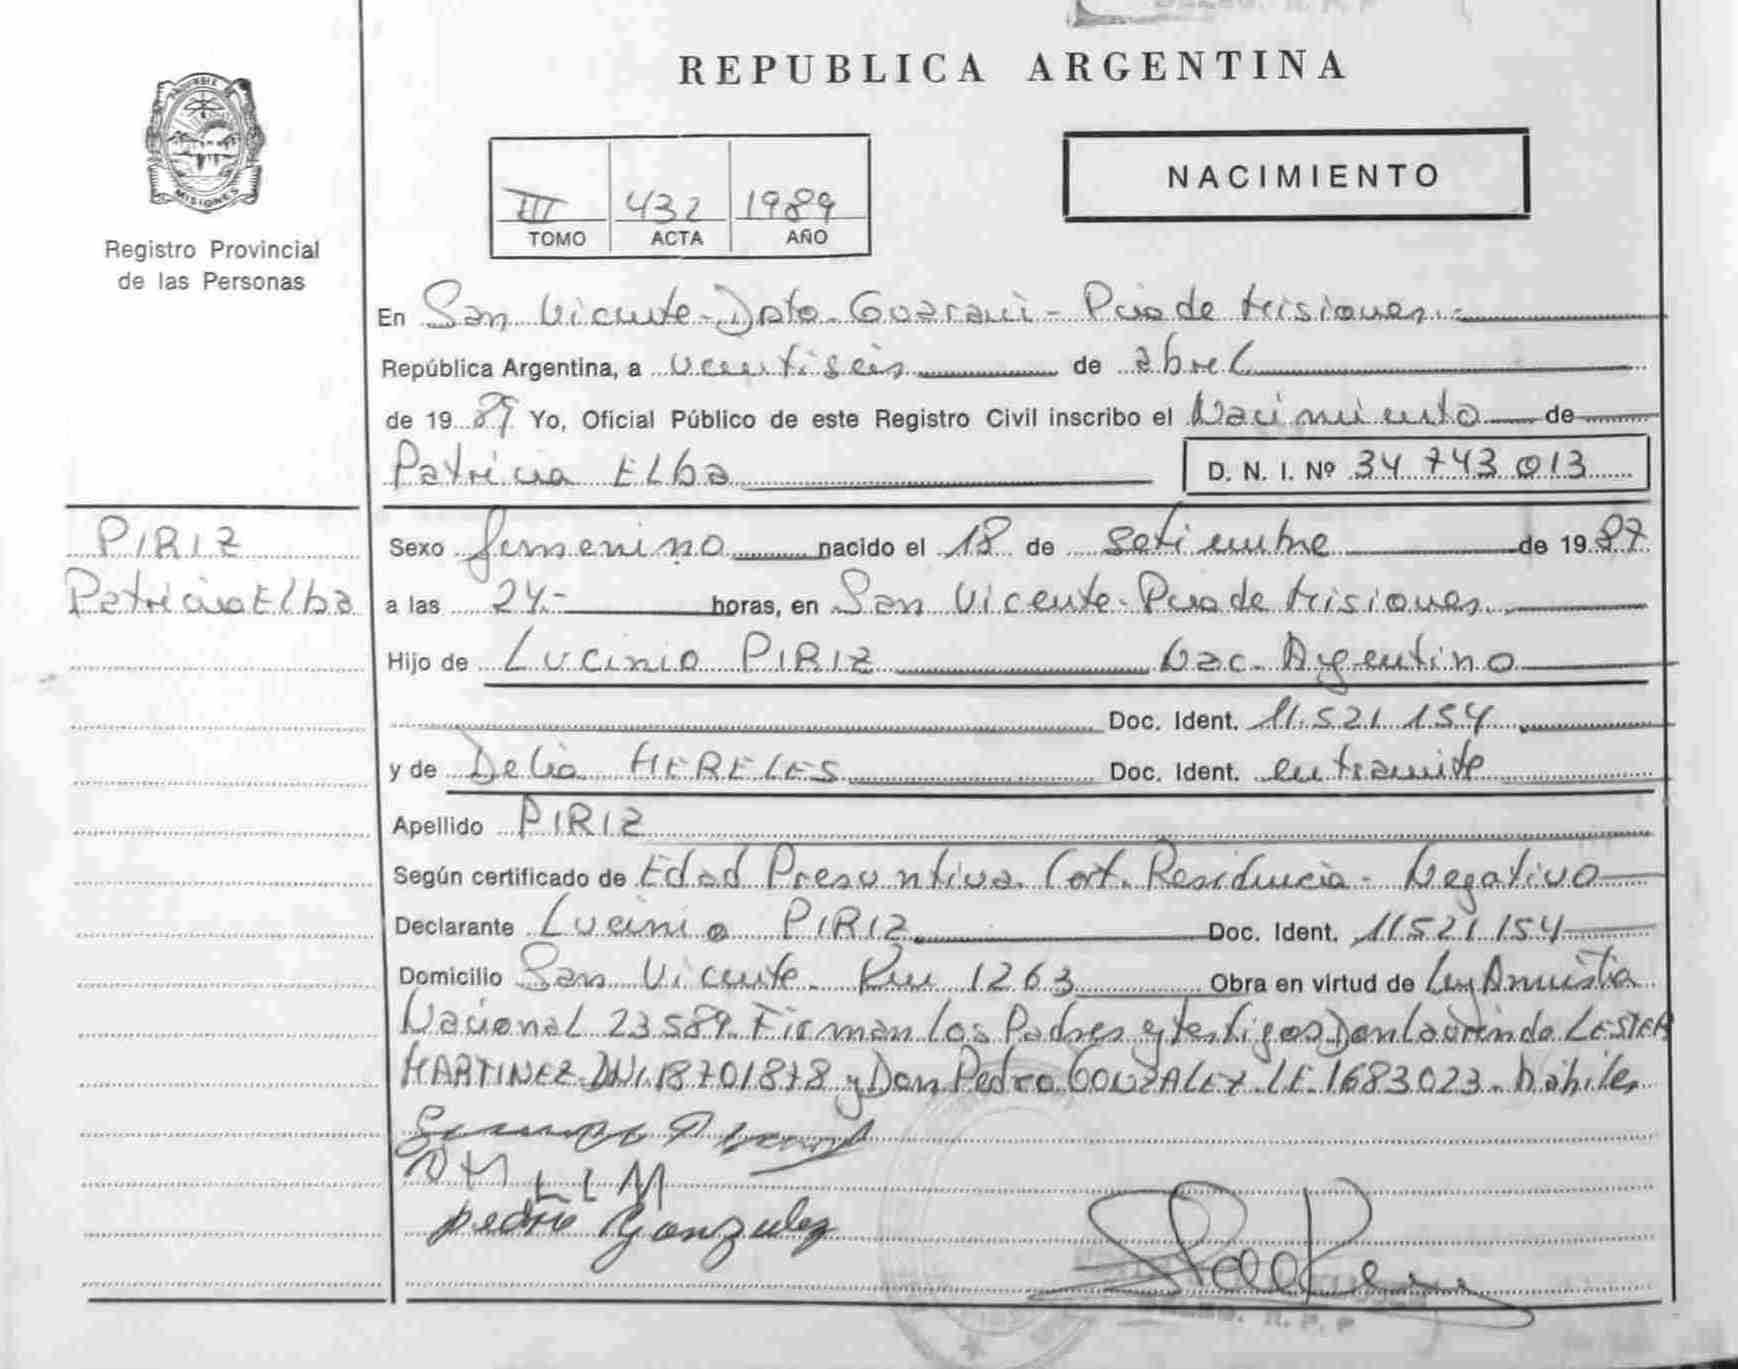 REPUBLICA ARGENTINA
PROVINCIA
MISIONES
Registro Provincial
de las Personas
NACIMIENTO
III 432 1989
TOMO ACTA AÑO
En San Vicente - Dpto - Guaraní - Pcia de Misiones.-
República Argentina, a veintiseis de abril
de 1989 Yo, Oficial Público de este Registro Civil inscribo el Nacimiento de
Patricia Elba
D. N. I. Nº 34 743 013
PIRIZ
Patricia Elba
Sexo femenino nacido el 18 de setiembre de 1987
a las 24.- horas, en San Vicente - Pcia de Misiones.
Hijo de Lucinio PIRIZ Nac. Argentino
Doc. Ident. 11.521.154
y de Delia MERELES Doc. Ident. en tramite
Apellido PIRIZ
Según certificado de Edad Presuntiva. Cert. Residencia - Negativo
Declarante Lucinio PIRIZ Doc. Ident. 11521154
Domicilio San Vicente. Km 1263 Obra en virtud de Ley Amnistia
Nacional 23.589. Firman los Padres y testigos Don Laurindo LESTER
MARTINEZ DNI 18701878 y Don Pedro GONZALEZ LE. 1683023. hábiles
D M L L M
pedro gonzalez
R. P. P